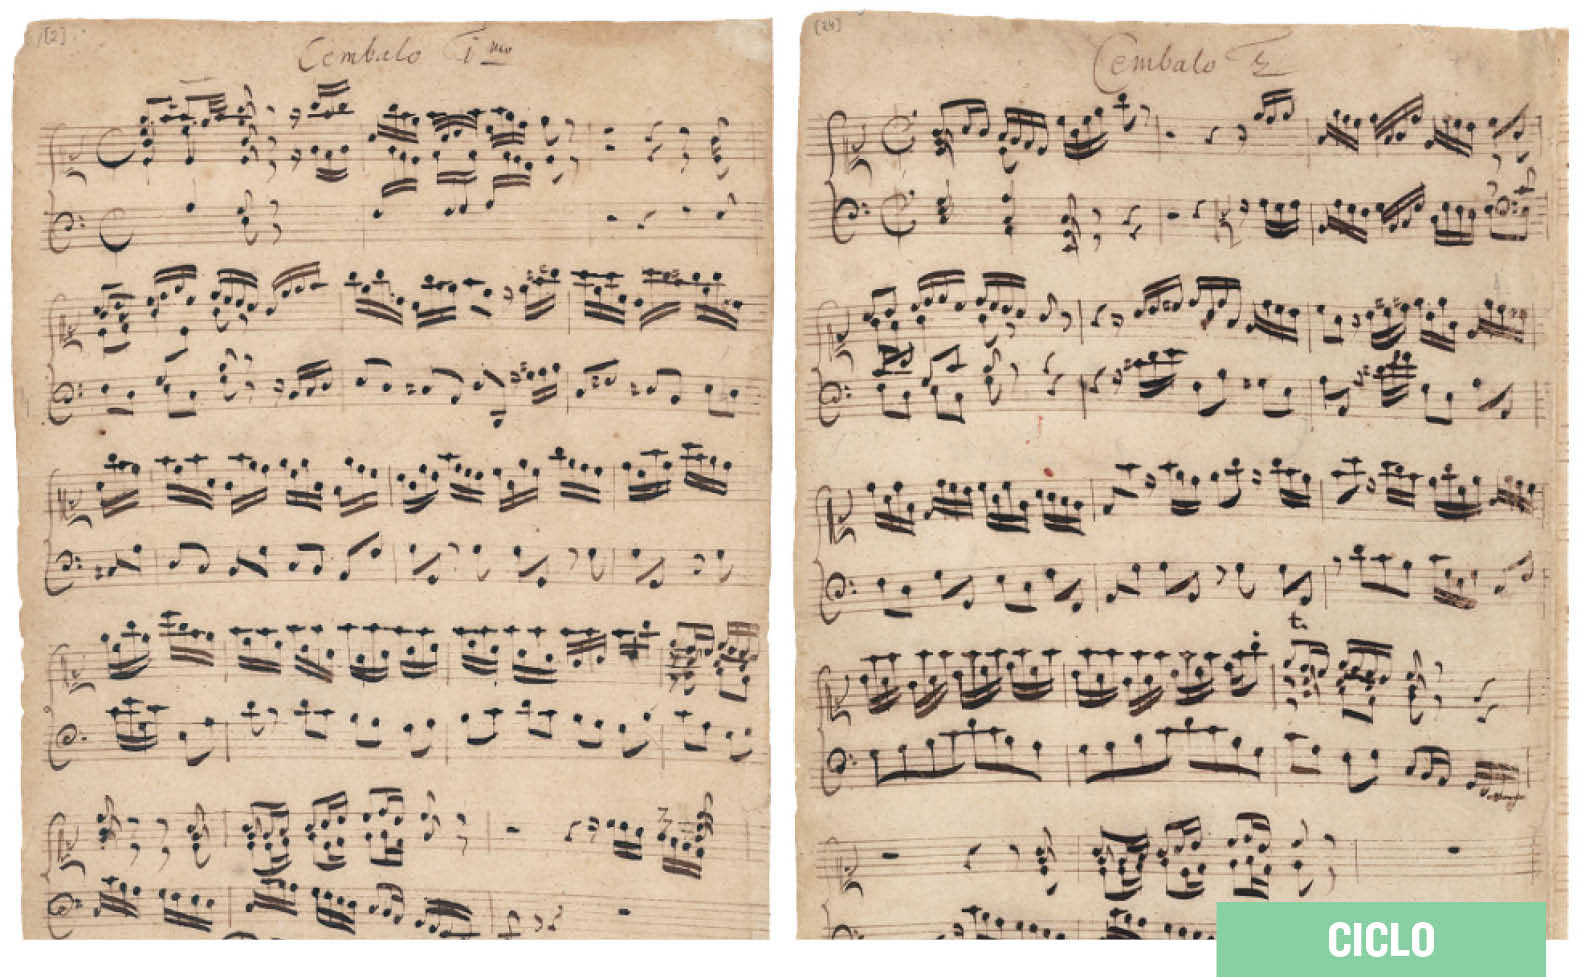 [2]
Cembalo 1mo
[24]
Cembalo 2
t.
CICLO